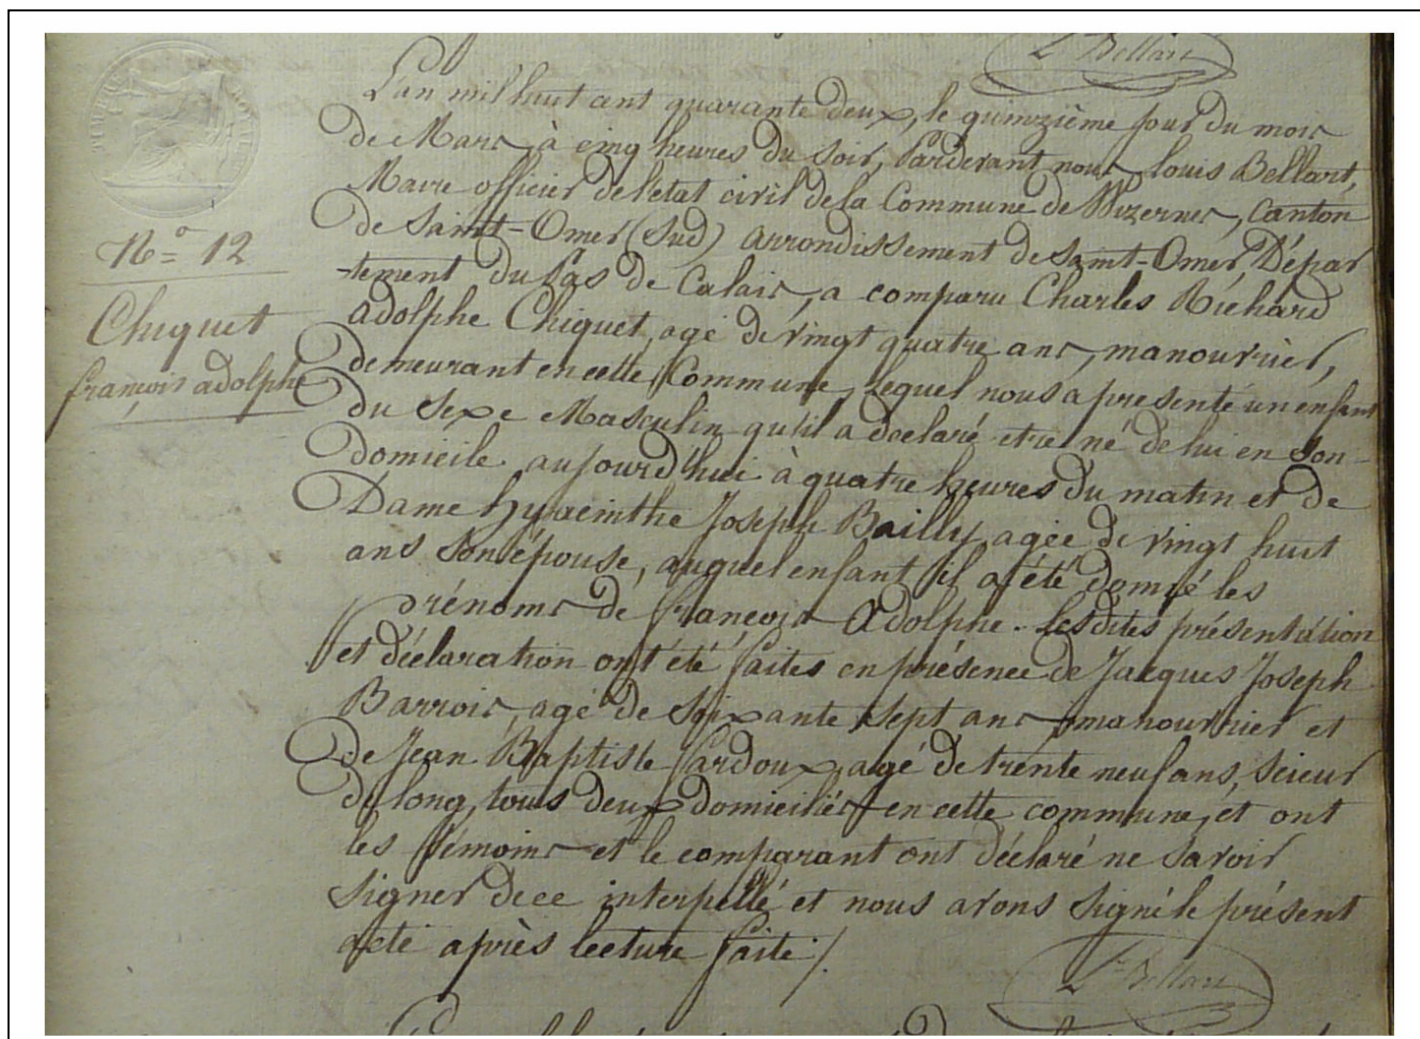 Ls Bellart
L'an mil huit cent quarante deux, le quinzième jour du mois
de Mars, à cinq heures du soir, Pardevant nous Louis Bellart,
Maire officier de l'etat civil de la Commune de Wizernes, Canton
de Saint-Omer (Sud) arrondissement de Saint-Omer, Dépar
-tement du Pas de Calais, a comparu Charles Richard
adolphe Chiquet, agé de vingt quatre ans, manouvrier,
demeurant en cette Commune, lequel nous a presenté un enfant
du Sexe Masculin qu'il a declaré etre né de lui en son
domicile aujourd'hui à quatre heures du matin et de
Dame hyacinthe Joseph Bailly agée de vingt huit
ans son épouse, auquel enfant il a été donné les
prénoms de françois Adolphe. Lesdites présentation
et déclaration ont été faites en présence de Jacques Joseph
Barrois, agé de soixante sept ans manouvrier et
de Jean Baptiste Cardoux, agé de trente neuf ans, scieur
de long, tous deux domiciliés en cette commune, et ont
les témoins et le comparant ont déclaré ne savoir
signer de ce interpellé et nous avons signé le présent
acte après lecture faite ./.
Ls Bellart
No = 12
Chiquet
françois adolphe